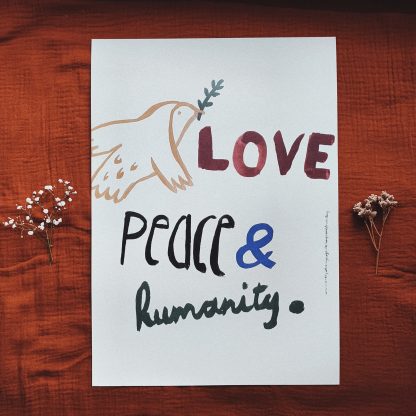 LOVE
Peace &
Humanity.